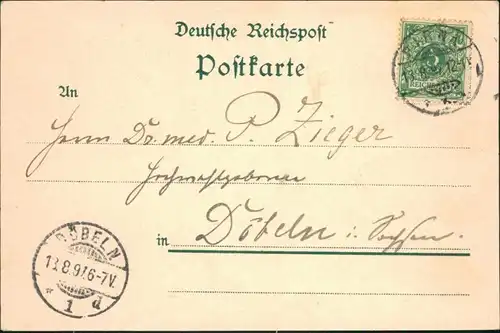 Deutsche Reichspost
Postkarte
An
Herrn Dr. med. P. Zieger
Hochwohlgeboren
in Döbeln i. Sachsen.
DÖBELN
13.8.97.6-7V.
* 1 d